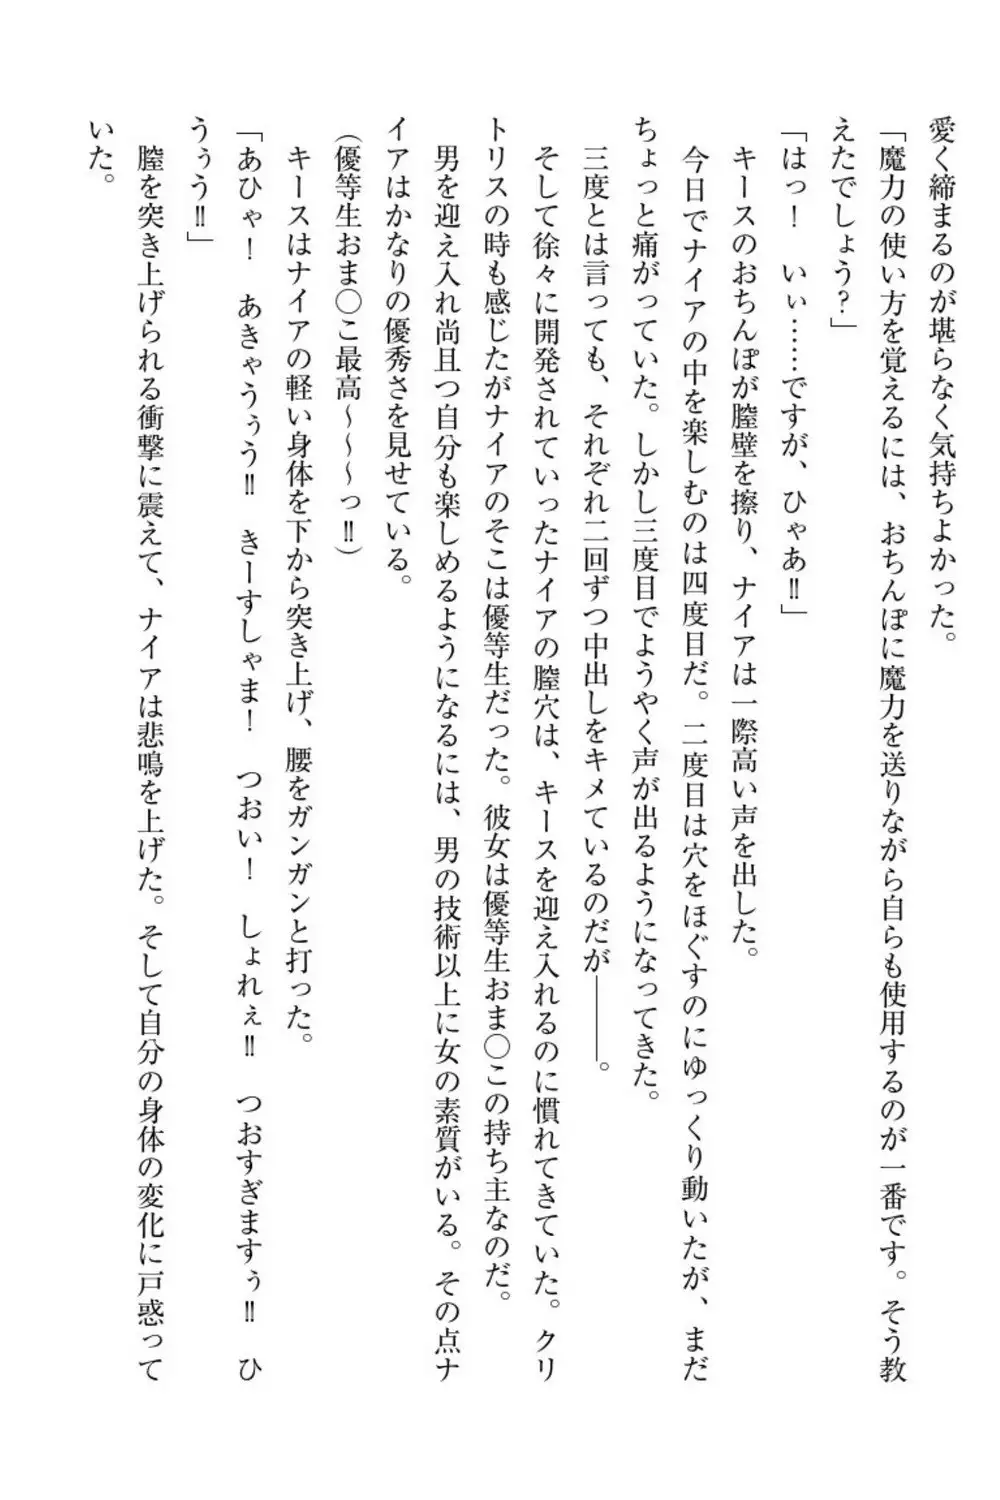 愛く締まるのが堪らなく気持ちよかった。
「魔力の使い方を覚えるには、おちんぽに魔力を送りながら自らも使用するのが一番です。そう教
えたでしょう?」
「はっ！　いぃ……ですが、ひゃあ‼」
キースのおちんぽが膣壁を擦り、ナイアは一際高い声を出した。
今日でナイアの中を楽しむのは四度目だ。二度目は穴をほぐすのにゆっくり動いたが、まだ
ちょっと痛がっていた。しかし三度目でようやく声が出るようになってきた。
三度とは言っても、それぞれ二回ずつ中出しをキメているのだが――。
そして徐々に開発されていったナイアの膣穴は、キースを迎え入れるのに慣れてきていた。クリ
トリスの時も感じたがナイアのそこは優等生だった。彼女は優等生おま〇この持ち主なのだ。
男を迎え入れ尚且つ自分も楽しめるようになるには、男の技術以上に女の素質がいる。その点ナ
イアはかなりの優秀さを見せている。
（優等生おま〇こ最高～～～っ‼）
キースはナイアの軽い身体を下から突き上げ、腰をガンガンと打った。
「あひゃ！　あきゃうぅう‼　きーすしゃま！　つおい！　しょれぇ‼　つおすぎますぅ‼　ひ
うぅう‼」
膣を突き上げられる衝撃に震えて、ナイアは悲鳴を上げた。そして自分の身体の変化に戸惑って
いた。